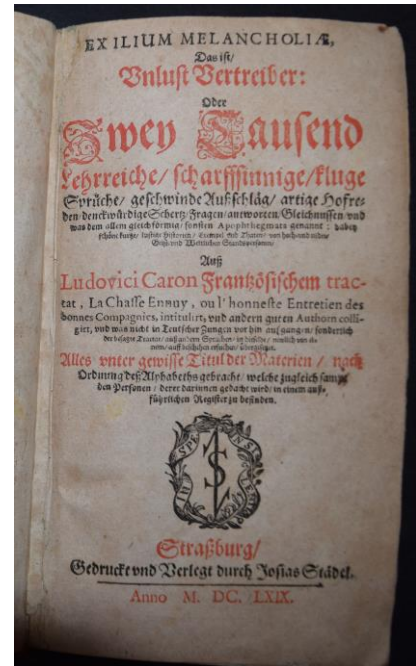 EXILIUM MELANCHOLIÆ,
Das ist/
Vnlust Vertreiber:
Oder
Zwey Tausend
Lehrreiche/ scharffsinnige/ kluge
Sprüche/ geschwinde Außschläg/ artige Hofre-
den/ denckwürdige Schertz/ Fragen/ antworten/ Gleichnussen/ vnd
was dem allem gleichförmig/ sonsten Apophthegmata genannt: dabey
schöne kurtze/ lustige Historien/ Exempel vnd Thaten/ von hoch vnd nider/
Geist- vnd Weltlichen Standspersonen/
Auß
Ludovici Caron Frantzösischem trac-
tat, La Chasse Ennuy, ou l'honneste Entretien des
bonnes Compagnies, intitulirt, vnd andern guten Authorn colli-
girt, vnd was nicht in Teutscher Zungen vor hin außgangen/ sonderlich
der besagte Tractat/ auß andern Sprachen/ in dieselbe/
Alles vnter gewisse Titul der Materien/ nach
Ordnung deß Alphabeths gebracht/ welche zugleich sampt
den Personen/ derer darinnen gedacht wird/ in einem auß-
führlichen Register zu befinden.
Straßburg/
Gedruckt vnd Verlegt durch Josias Städel.
Anno M. DC. LXIX.